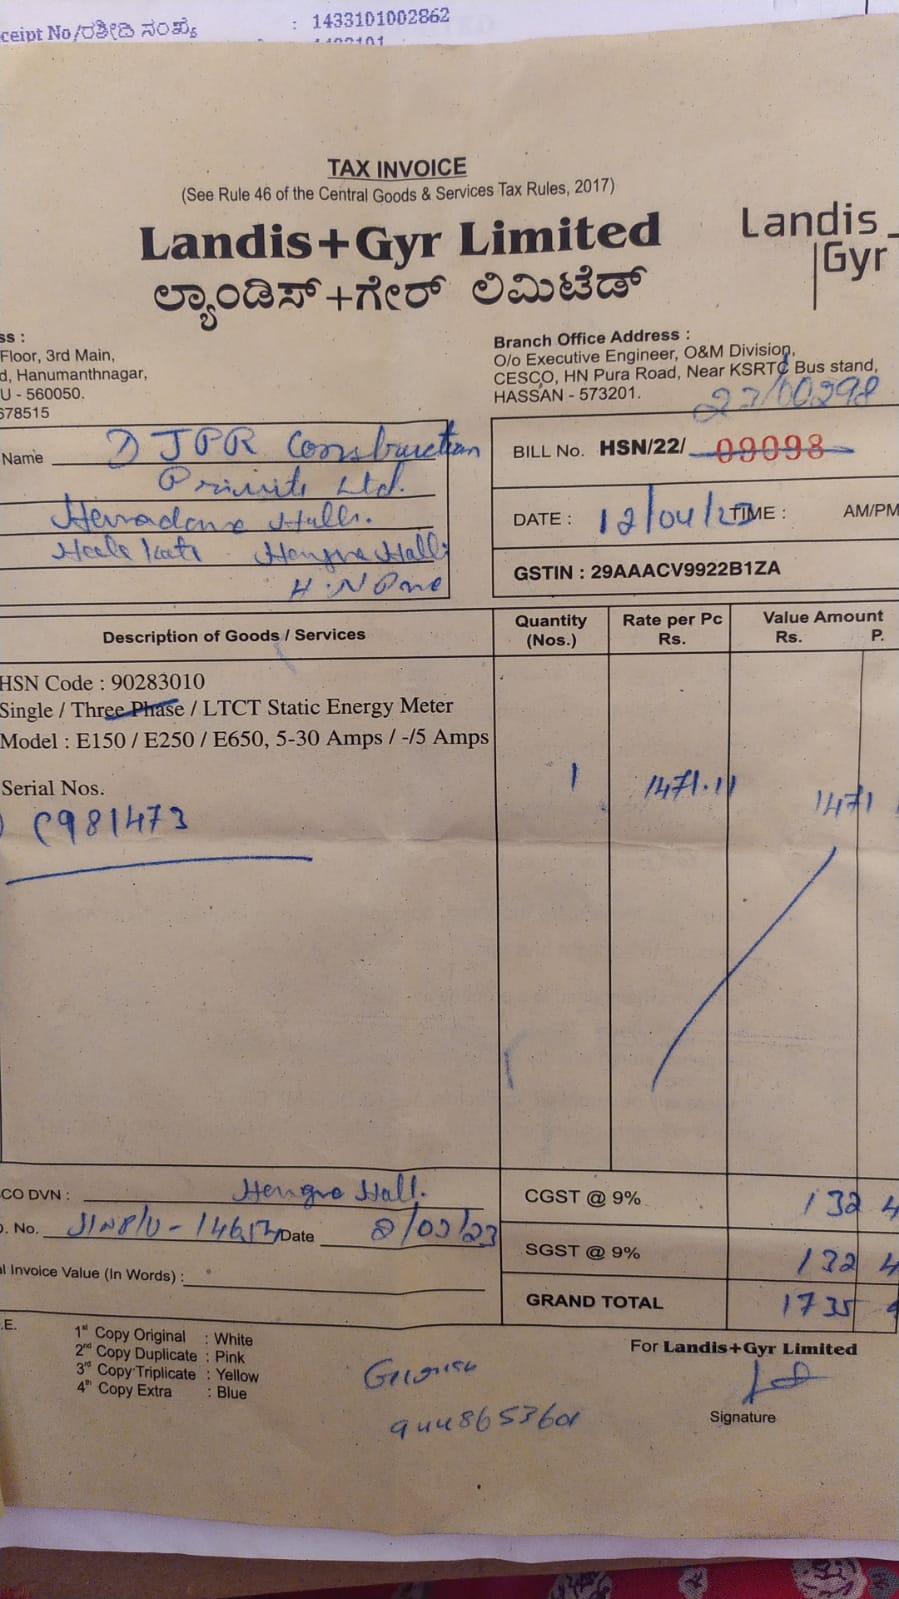 ceipt No/ರಶೀದಿ ಸಂಖ್ಯೆ : 1433101002862
TAX INVOICE
(See Rule 46 of the Central Goods & Services Tax Rules, 2017)
Landis+Gyr Limited
ಲ್ಯಾಂಡಿಸ್+ಗೇರ್ ಲಿಮಿಟೆಡ್
Landis
Gyr
ss :
Floor, 3rd Main,
d, Hanumanthnagar,
U - 560050.
678515
Branch Office Address :
O/o Executive Engineer, O&M Division,
CESCO, HN Pura Road, Near KSRTC Bus stand,
HASSAN - 573201.
23/00298
Name DJPR Construction
Ltd.
Halli.
BILL No. HSN/22/ 09098
DATE : 12/04/23 TIME : AM/PM
GSTIN : 29AAACV9922B1ZA
Description of Goods / Services Quantity (Nos.) Rate per Pc Rs. Value Amount Rs. P.
HSN Code : 90283010
Single / Three Phase / LTCT Static Energy Meter
Model : E150 / E250 / E650, 5-30 Amps / -/5 Amps
1 1471.11 1471
Serial Nos.
C981473
CO DVN : Halli.
CGST @ 9% 132 4
. No. Date 2/03/23
SGST @ 9% 132 4
l Invoice Value (In Words) :
GRAND TOTAL 1735
.E.
1st Copy Original : White
2nd Copy Duplicate : Pink
3rd Copy Triplicate : Yellow
4th Copy Extra : Blue
For Landis+Gyr Limited
9448653601
Signature